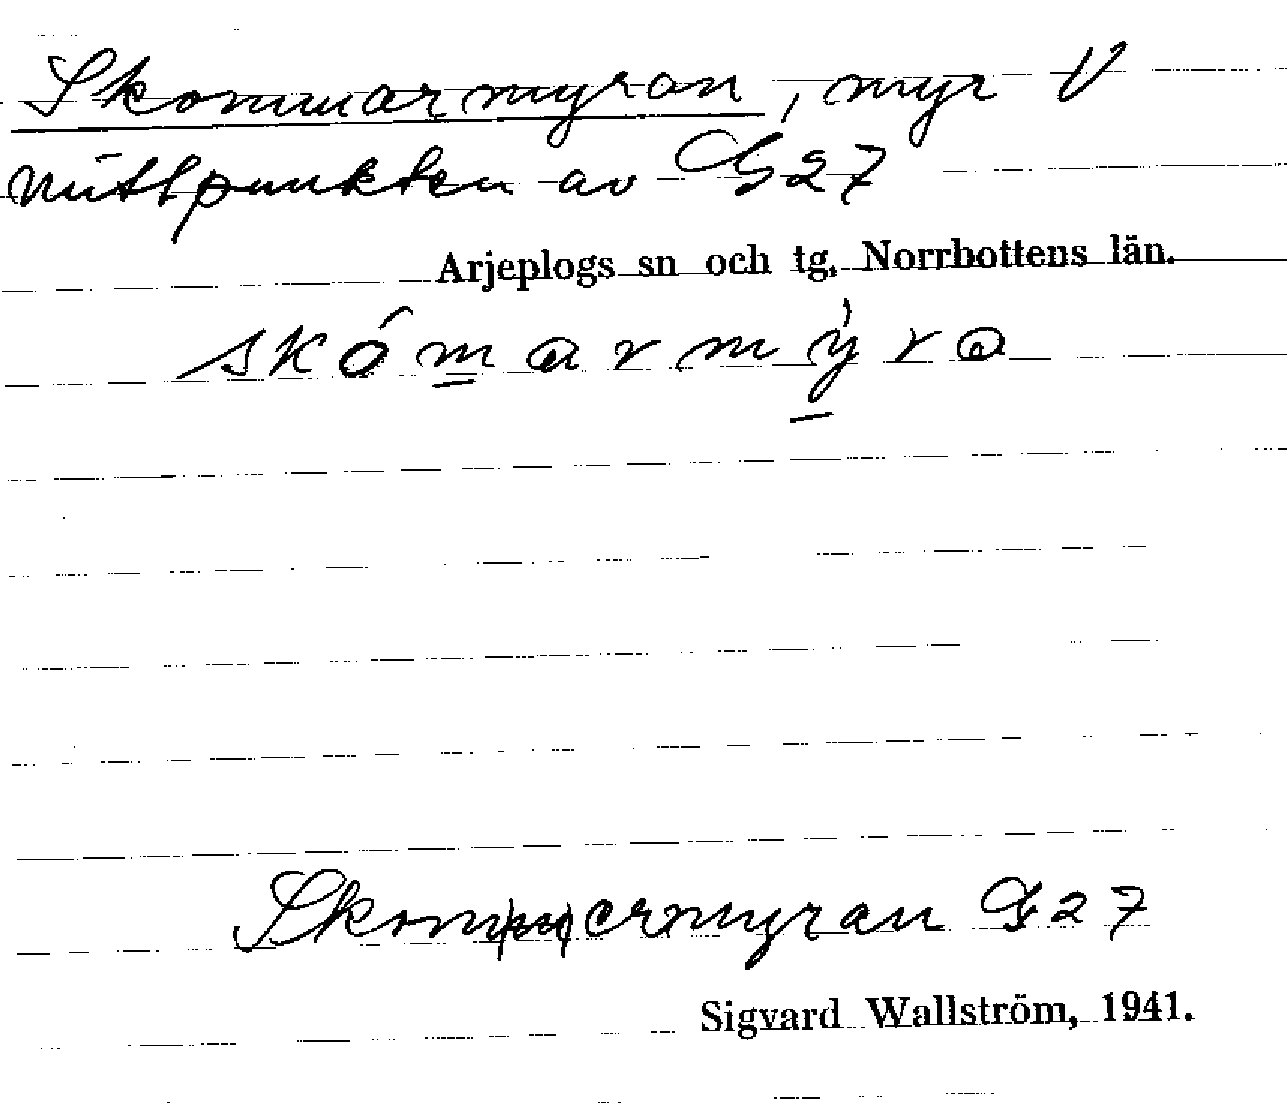 Skommarmyran, myr V
mittpunkten av G27
Arjeplogs sn och tg. Norrbottens län.
skómarmỳra
Skom(m)ermyran G27
Sigvard Wallström, 1941.